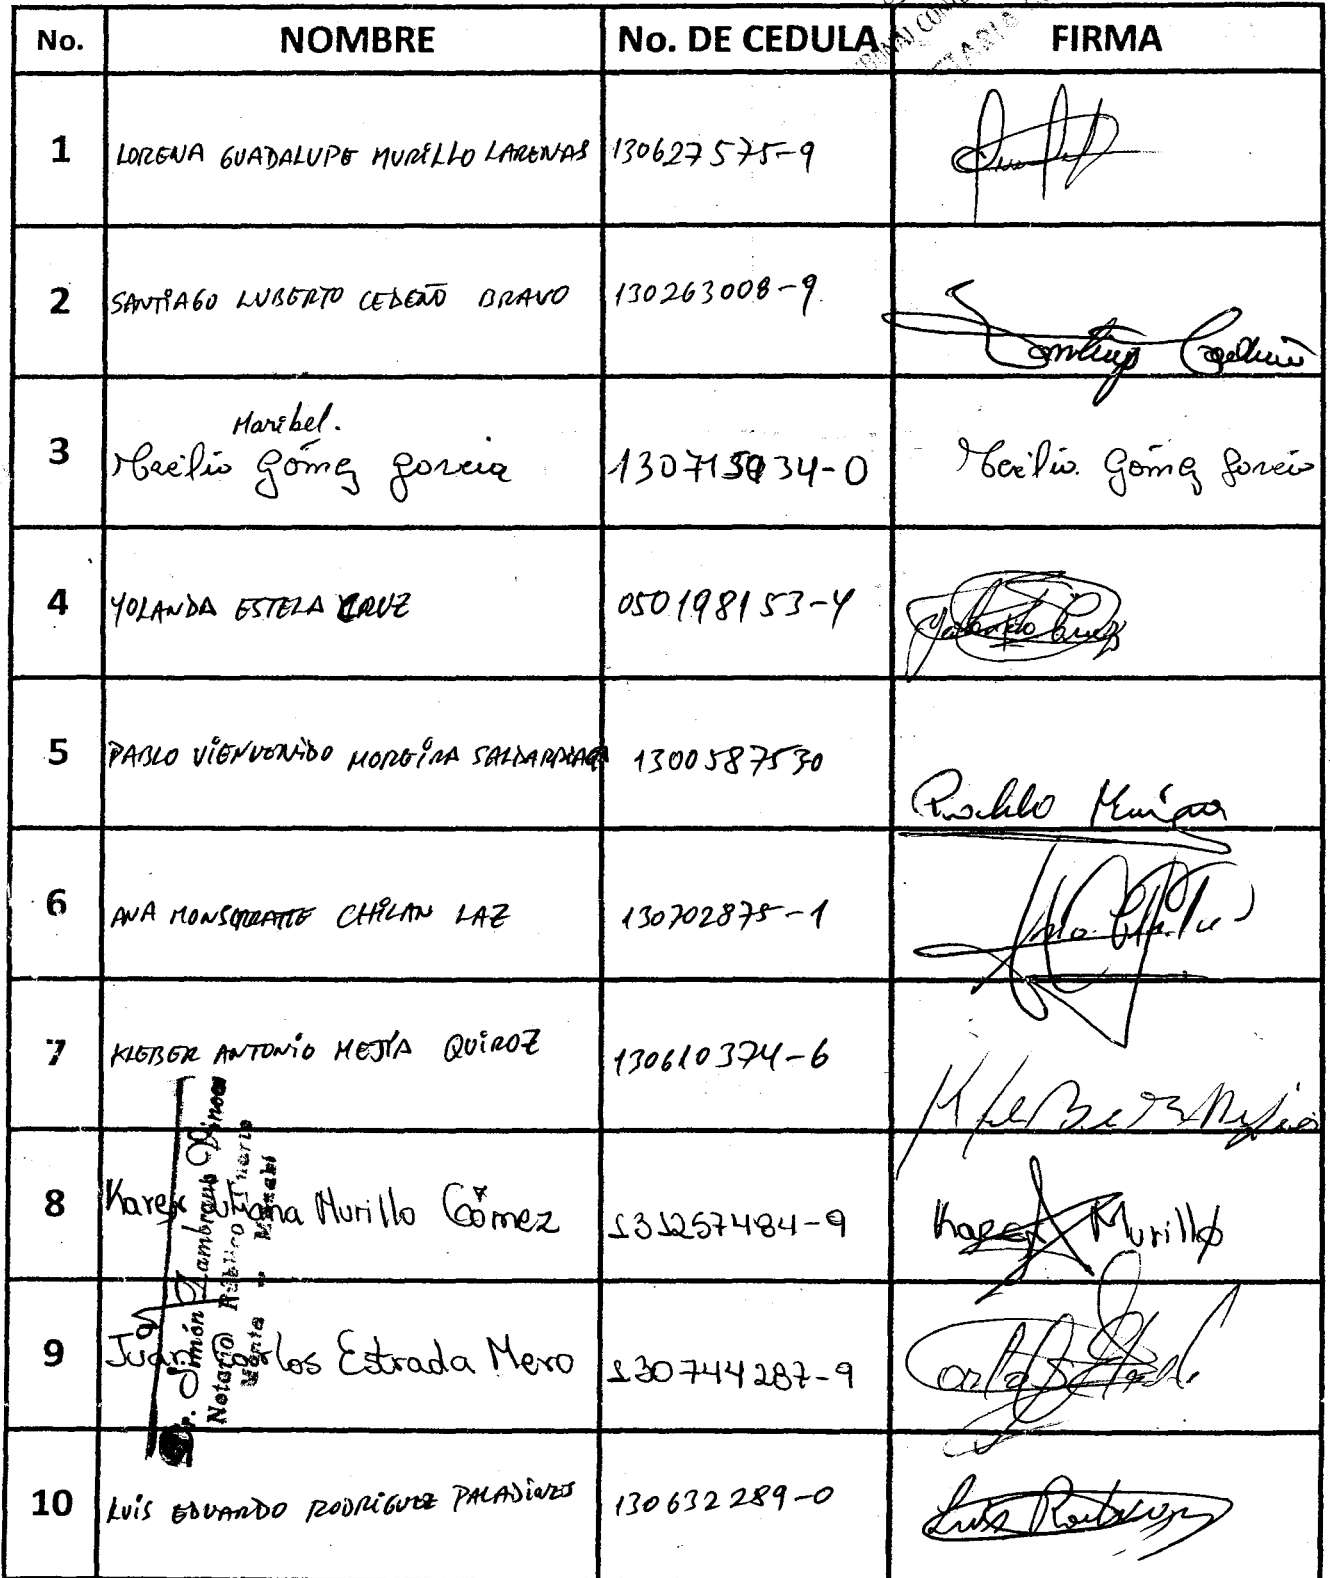 No. NOMBRE No. DE CEDULA FIRMA
1 LORENA GUADALUPE MURILLO LARENAS 130627575-9
2 SANTIAGO LUBERTO CEDEÑO BRAVO 130263008-9 Santiago Cedeño
Maribel.
3 Gómez Garcia 130715934-0 Gómez Garcia
4 YOLANDA ESTELA CRUZ 050198153-4 Yolanda Cruz
5 PABLO VIENVENIDO MOREIRA SALDARRIAGA 1300587530
6 ANA MONSERRATTE CHILAN LAZ 130702875-1
7 KLEBER ANTONIO MEJÍA QUIROZ 130610374-6 Kleber Mejia
8 Karen Juliana Murillo Gómez 131257484-9 Karen Murillo
9 Juan Carlos Estrada Mero 130744287-9 Carlos Estrada
10 LUIS EDUARDO RODRIGUEZ PALADINES 130632289-0 Luis Rodriguez
Dr. Simón Zambrano Vinces
Notario Público
Manta - Manabí